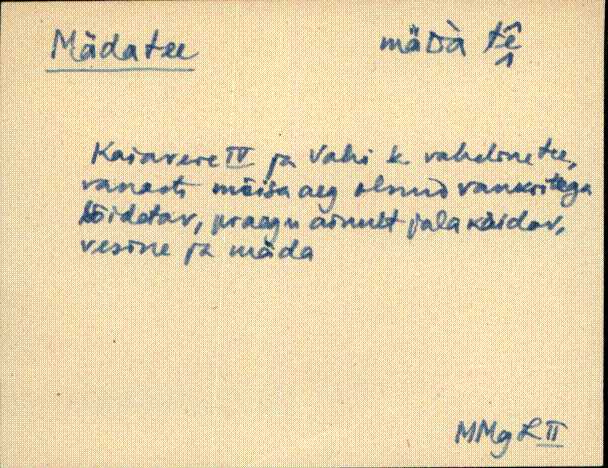 Mädatee
mäDà tê
Kaiavere IV ja Vahi k. vaheline tee,
vanasti mõisa aeg olnud vankritega
sõidetav, praegu ainult jala käidav,
vesine ja mäda
MMg L II